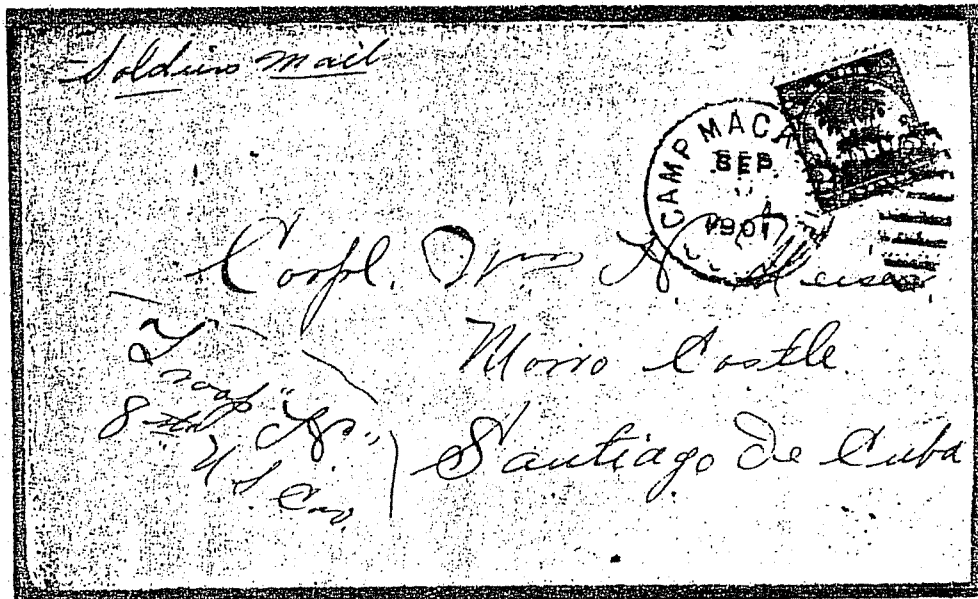 Soldiers Mail
CAMP MACA
SEP
1901
Corpl. Wm H.
Morro Castle.
Santiago de Cuba
Troop "H"
8th U S Cav.